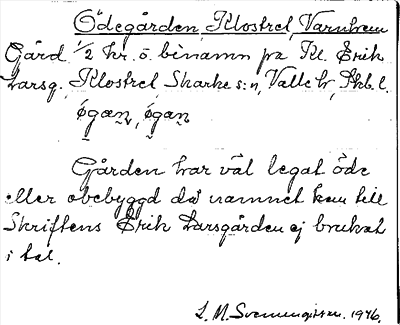 Ödegården, Klostret, Varnhem
Gård 1/2 hr. o. binamn på Kl. Erik
Larsg., Klostret, Skarke s:n, Valle hd, Skb. l.
øgæn, øgan
Gården har väl legat öde
eller obebyggd då namnet kom till
Skriftens Erik Larsgården ej brukat
i tal.
L. M. Svenungsson. 1946.